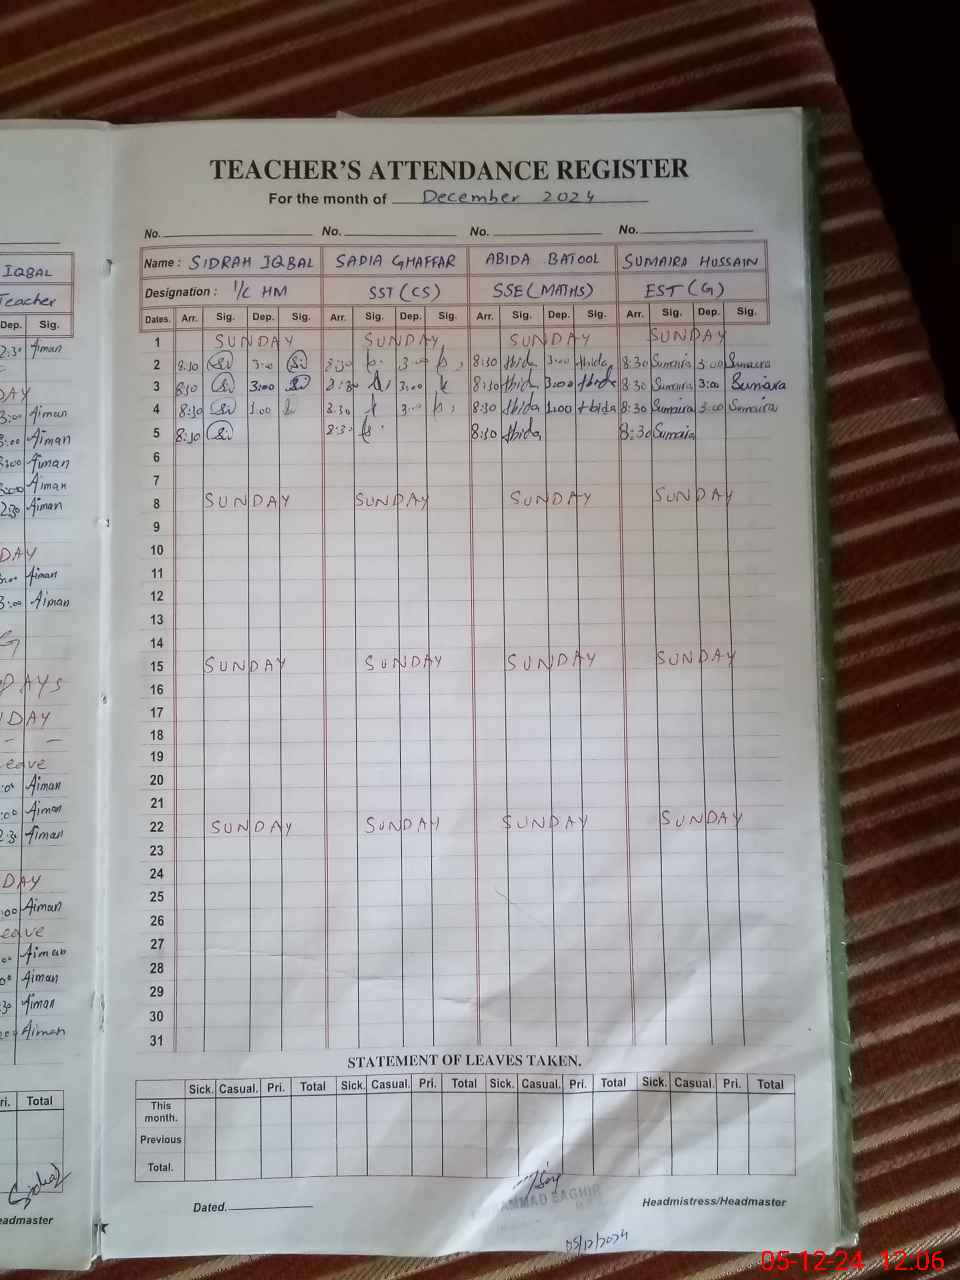 TEACHER'S ATTENDANCE REGISTER
For the month of December 2024
No. No. No. No.
IQBAL
Name : SIDRAH IQBAL SADIA GHAFFAR ABIDA BATOOL SUMAIRA HUSSAIN
Teacher
Designation : I/C HM SST (CS) SSE (MATHS) EST (G)
Dep. Sig.
Dates. Arr. Sig. Dep. Sig. Arr. Sig. Dep. Sig. Arr. Sig. Dep. Sig. Arr. Sig. Dep. Sig.
1 SUNDAY SUNDAY SUNDAY SUNDAY
2:30 Aiman
2 8:30 3:00 8:30 3:00 8:30 Abida 3:00 Abida 8:30 Sumaira 3:00 Sumaira
3 8:30 3:00 8:30 3:00 8:30 Abida 3:00 Abida 8:30 Sumaira 3:00 Sumaira
DAY
4 8:30 1:00 8:30 3:00 8:30 Abida 1:00 Abida 8:30 Sumaira 3:00 Sumaira
3:00 Aiman
5 8:30 8:30 8:30 Abida 8:30 Sumaira
3:00 Aiman
6
3:00 Aiman
7
3:00 Aiman
8 SUNDAY SUNDAY SUNDAY SUNDAY
2:30 Aiman
9
10
DAY
11
3:00 Aiman
12
3:00 Aiman
13
14
15 SUNDAY SUNDAY SUNDAY SUNDAY
16
DAYS
17
DAY
18
19
eave
20
:00 Aiman
21
:00 Aiman
22 SUNDAY SUNDAY SUNDAY SUNDAY
2:3 Aiman
23
24
DAY
25
:00 Aiman
26
eave
27
Aiman
28
Aiman
29
:30 Aiman
30
Aiman
31
STATEMENT OF LEAVES TAKEN.
Sick. Casual. Pri. Total Sick. Casual. Pri. Total Sick. Casual. Pri. Total Sick. Casual. Pri. Total
ri. Total
This
month.
Previous
Total.
Dated. Headmistress/Headmaster
eadmaster
AMMAD SAGHIR
05/12/2024
05-12-24 12:06